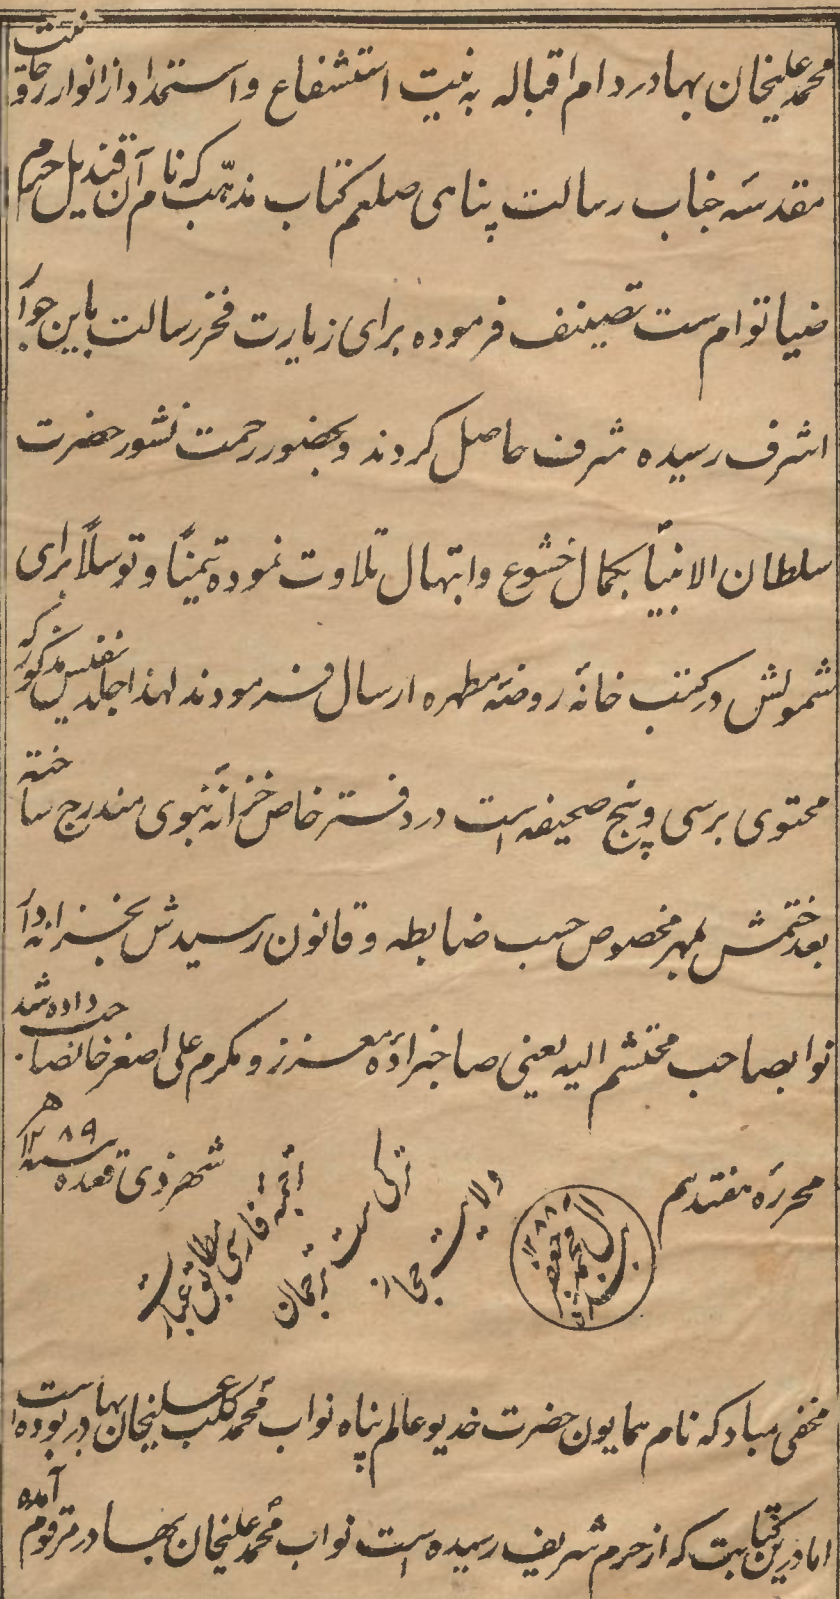 محمد علیخان بهادر دام اقباله به نیت استشفاع و استمداد از انوار
مقدسه جناب رسالت پناهی صلعم کتاب مذهّب که نام آن قندیل حرم
ضیا توام ست تصنیف فرموده برای زیارت فخر رسالت باین جوار
اشرف رسیده شرف حاصل کردند و بحضور رحمت نشور حضرت
سلطان الانبیا بکمال خشوع و ابتهال تلاوت نموده تیمنًا و توسلًا برای
شمولش در کتب خانهٔ روضهٔ مطهره ارسال فرمودند لهذا جلد نفیس مذکور که
محتوی بر سی و پنج صحیفه است در دفتر خاص خزانهٔ نبوی مندرج ساخته
بعد ختمش بمهر مخصوص حسب ضابطه و قانون رسیدش بخزانه دار
نواب صاحب محتشم الیه یعنی صاحبزادهٔ معزز و مکرم علی اصغر خانصاحب داده شد
محررهٔ هفتدهم شهر ذی قعده سنه ۱۲۸۹ ھ
محمد جعفر ۱۲۸۸
ولایت حجاز
ترکی ست ترجمان
ترجمهٔ فارسی مطابق عبارت
مخفی مباد که نام همایون حضرت خدیو عالم پناه نواب محمد کلب علیخان بهادر بوده است
اما درین کتابت که از حرم شریف رسیده است نواب محمد علیخان بهادر مرقوم آمده